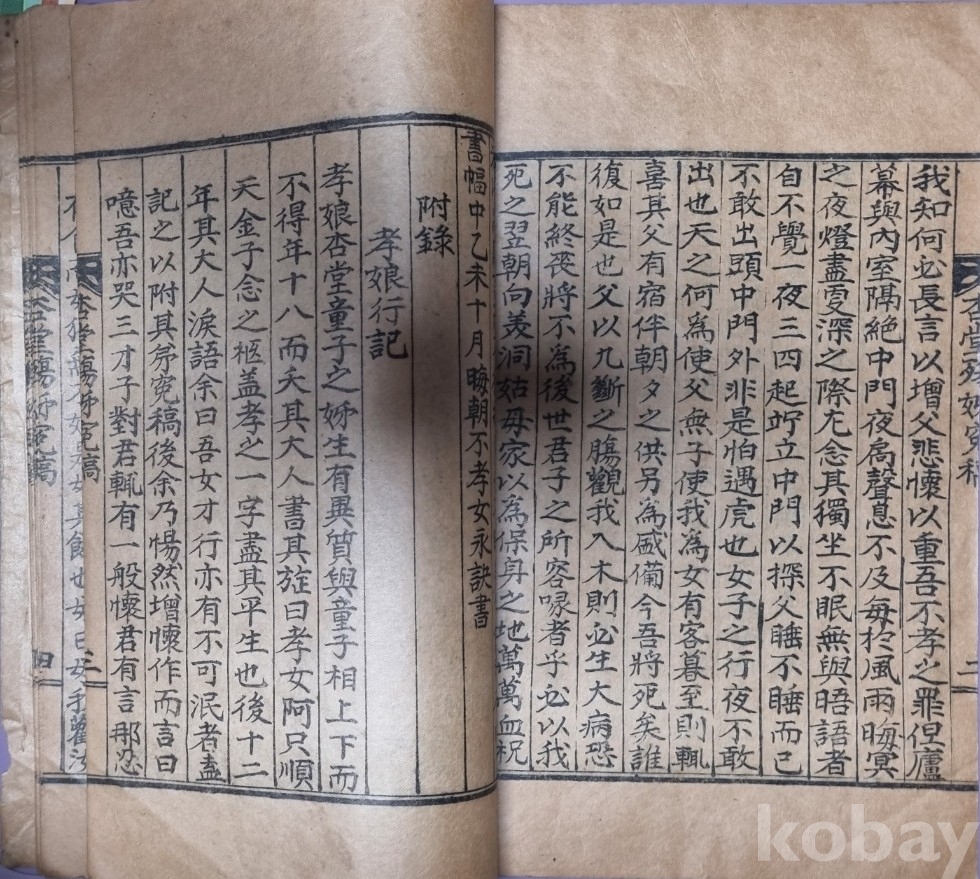 我知何必長言以增父悲懷以重吾不孝之罪但廬
幕與內室隔絕中門夜扃聲息不及每於風雨晦冥
之夜燈盡更深之際尤念其獨坐不眠無與晤語者
自不覺一夜三四起竚立中門以探父睡不睡而已
不敢出頭中門外非是怕遇虎也女子之行夜不敢
出也天之何為使父無子使我為女有客暮至則輒
喜其父有宿伴朝夕之供另為盛備今吾將死矣誰
復如是也父以九斷之腸觀我入木則必生大病恐
不能終喪將不為後世君子之所容喙者乎必以我
死之翌朝向美洞姑母家以為保身之地萬萬血祝
書幅中乙未十月晦朝不孝女永訣書
附錄
孝娘行記
孝娘杏堂童子之姊生有異質與童子相上下而
不得年十八而夭其大人書其旌曰孝女阿只順
天金子念之柩盖孝之一字盡其平生也後十二
年其大人淚語余曰吾女才行亦有不可泯者盍
記之以附其弟寃稿後余乃惕然增懷作而言曰
噫吾亦哭三才子對君輒有一般懷君有言那忍
杏堂殤姊寃稿
三
四
kobay